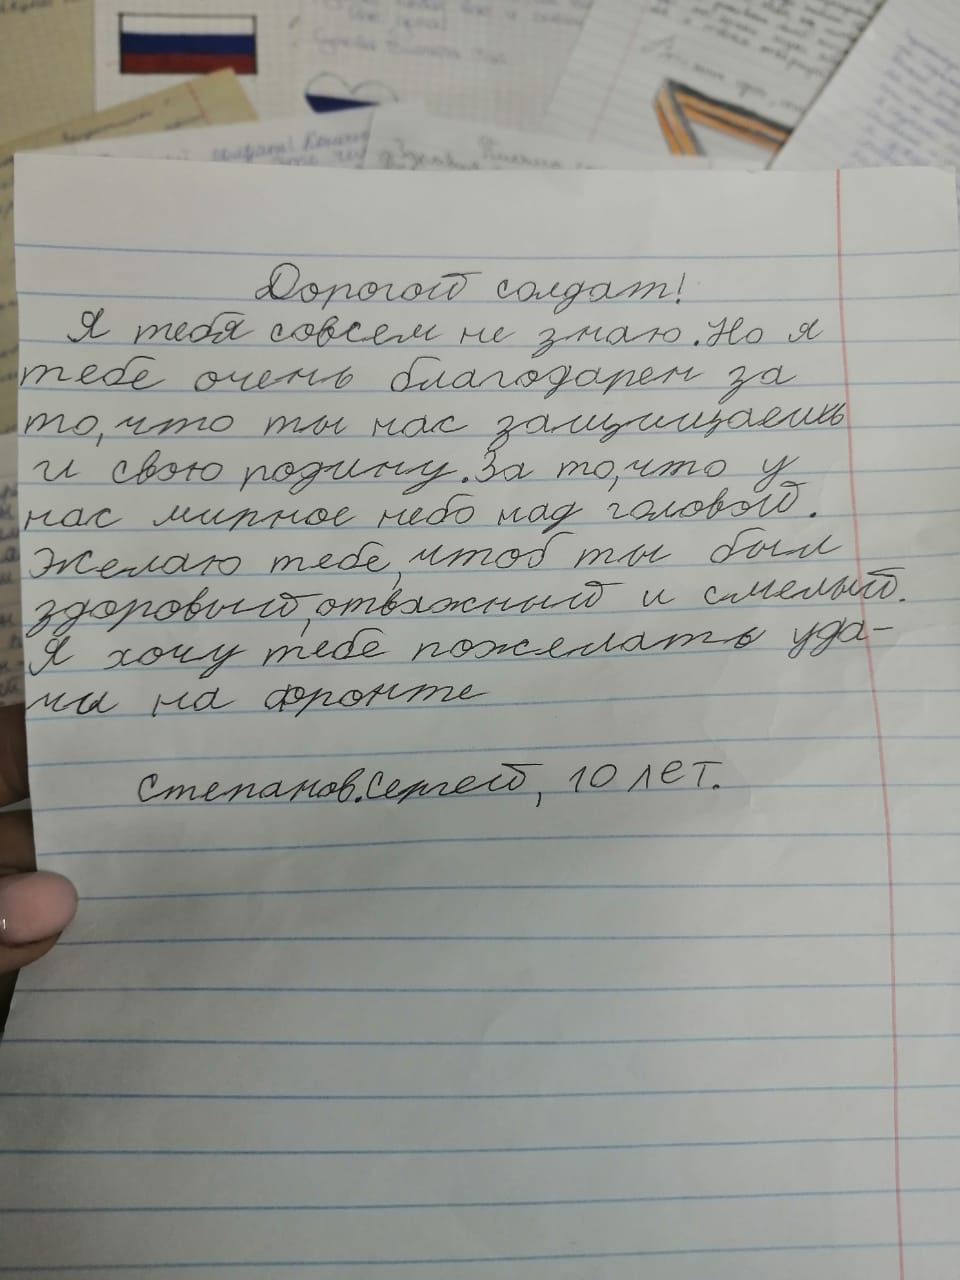 Дорогой солдат!
Я тебя совсем не знаю. Но я
тебе очень благодарен за
то, что ты нас защищаешь
и свою родину. За то, что у
нас мирное небо над головой.
Желаю тебе, чтоб ты был
здоровый, отважный и смелый.
Я хочу тебе пожелать уда-
чи на фронте
Степанов.Сергей, 10 лет.